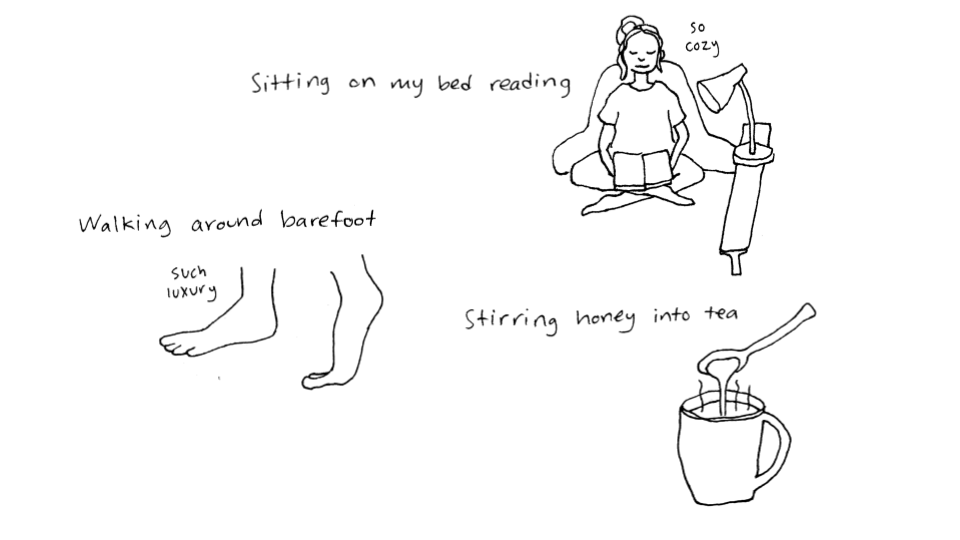 so
cozy
Sitting on my bed reading
Walking around barefoot
such
luxury
Stirring honey into tea